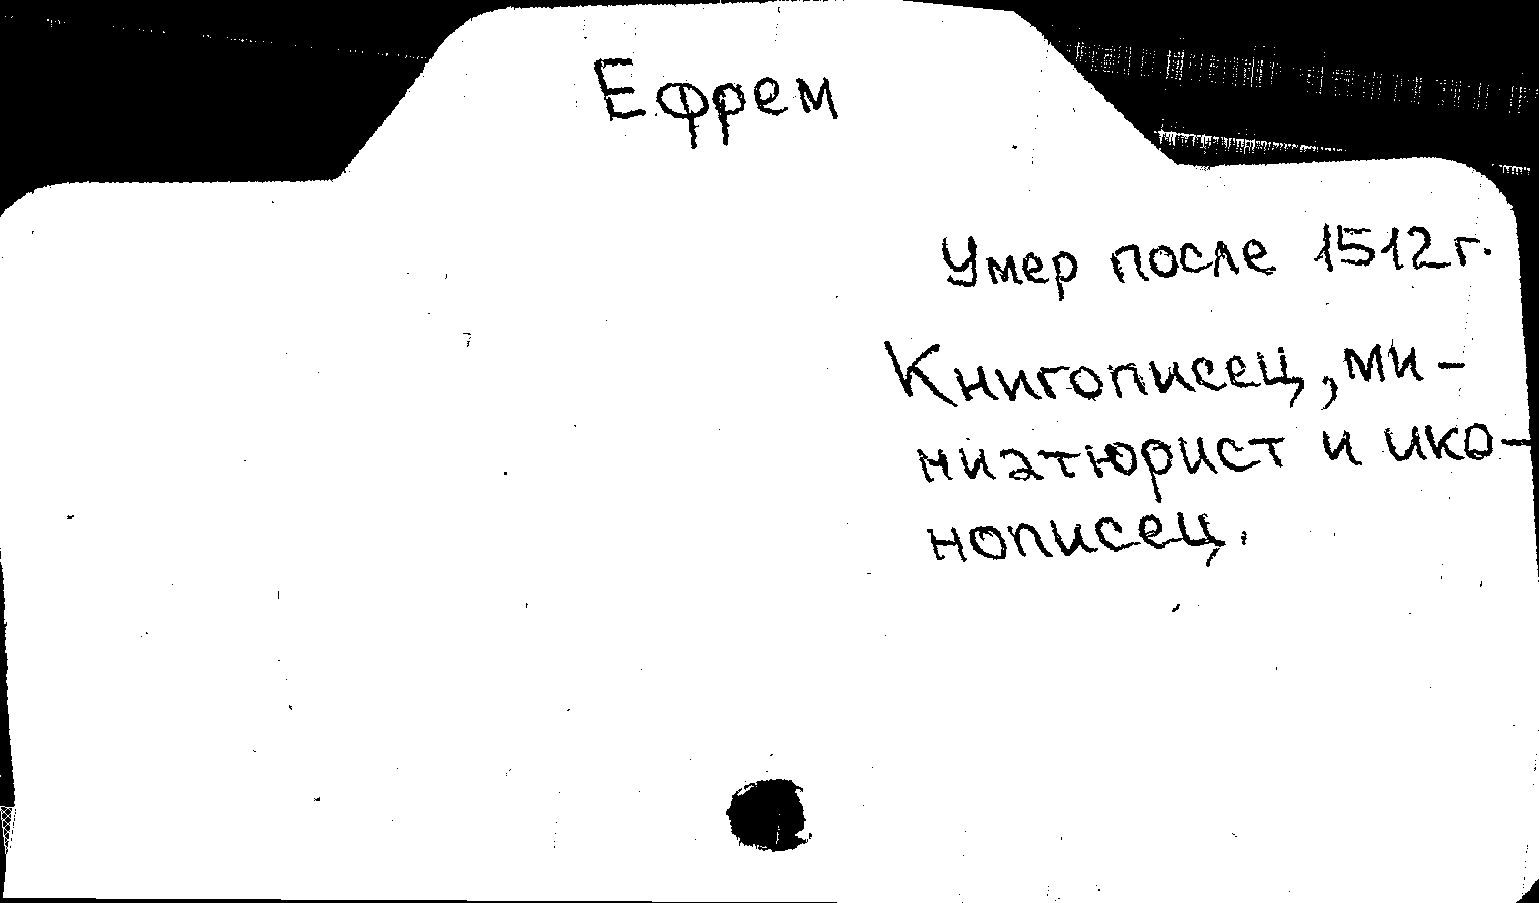 Ефрем
Умер после 1512 г.
Книгописец, ми-
ниатюрист и ико-
нописец.